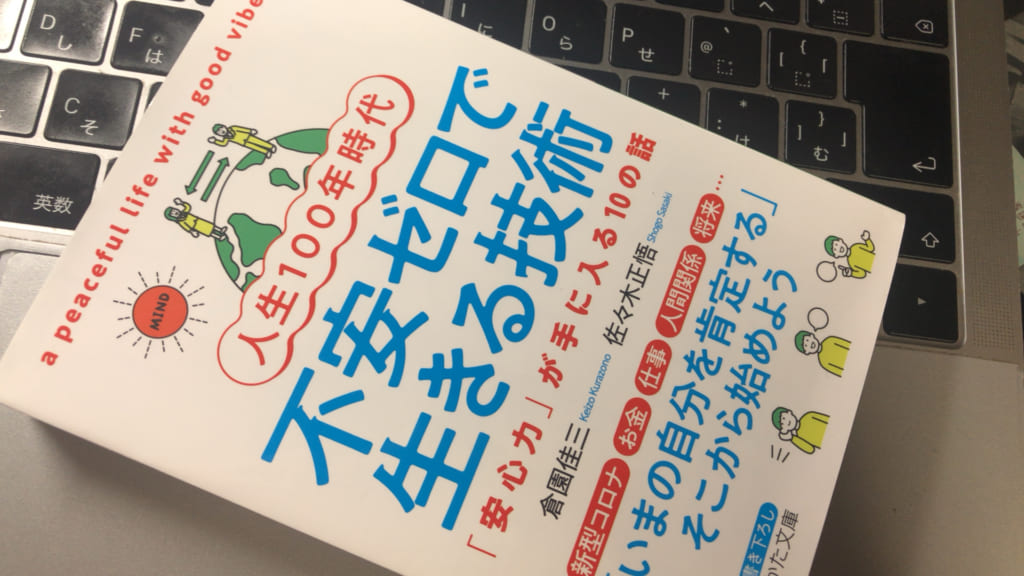 a peaceful life with good vibe
MIND
人生100年時代
不安ゼロで
生きる技術
「安心力」が手に入る10の話
倉園佳三 Keizo Kurazono 佐々木正悟 Shogo Sasaki
新型コロナ お金 仕事 人間関係 将来…
いまの自分を肯定する」
そこから始めよう
書き下ろし
かた文庫
D
し
F
は
C
そ
英数
I
に
O
ら
P
せ
@
{
[
「
+
*
}
]
」
む